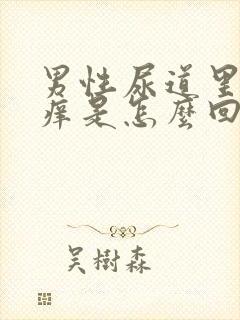 男性尿道里
痒是怎麼回
吴樹森